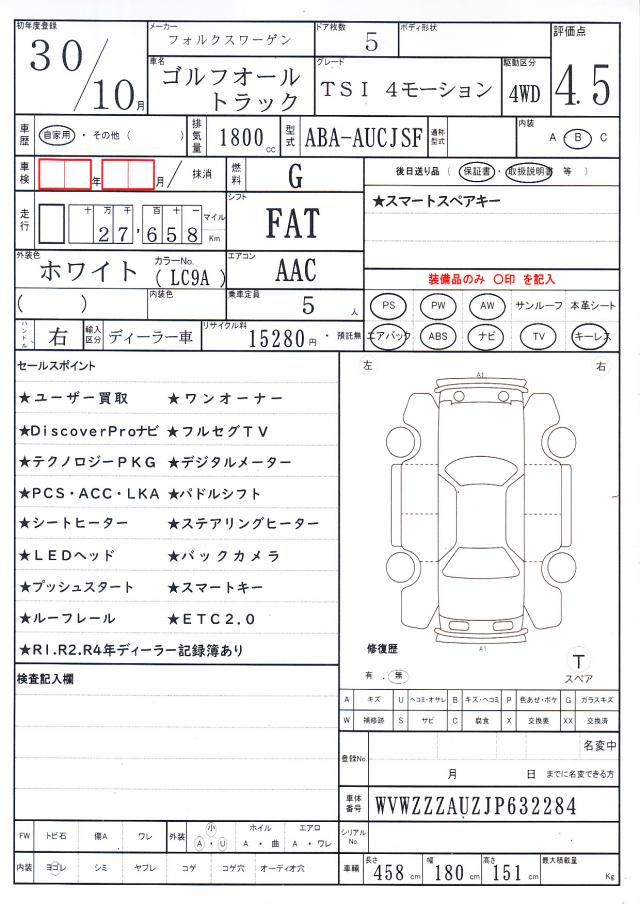 初年度登録 30/10月
メーカー フォルクスワーゲン
ドア枚数 5
ボディ形状
評価点 4.5
車名 ゴルフオールトラック
グレード TSI 4モーション
駆動区分 4WD
車歴 自家用 ・ その他 ( )
排気量 1800 cc
型式 ABA-AUCJSF
通称型式
内装 A ・ B C
車検 年 月 / 抹消
燃料 G
後日送り品 ( 保証書 ・ 取扱説明書 等 )
★スマートスペアキー
走行 十 万 千 百 十 一
27,658 マイル Km
シフト FAT
外装色 ホワイト カラーNo. ( LC9A )
エアコン AAC
装備品のみ 〇印 を記入
( ) 内装色
乗車定員 5 人
PS PW AW サンルーフ 本革シート
ハンドル 右
輸入区分 ディーラー車
リサイクル料 15280 円 ・ 預託無
エアバック ABS ナビ TV キーレス
セールスポイント
★ユーザー買取 ★ワンオーナー
★DiscoverProナビ ★フルセグTV
★テクノロジーPKG ★デジタルメーター
★PCS・ACC・LKA ★パドルシフト
★シートヒーター ★ステアリングヒーター
★LEDヘッド ★バックカメラ
★プッシュスタート ★スマートキー
★ルーフレール ★ETC2.0
★R1.R2.R4年ディーラー記録簿あり
検査記入欄
左 右
A1
A1
修復歴
有 . 無
T
スペア
A キズ U ヘコミ・オサレ B キズ・ヘコミ P 色あせ・ボケ G ガラスキズ
W 補修跡 S サビ C 腐食 X 交換要 XX 交換済
登録No. 名変中
月 日 までに名変できる方
車体番号 WVWZZZAUZJP632284
シリアルNo.
FW トビ石 傷A ワレ
外装 小 A ・ U
ホイル A ・ 曲
エアロ A ・ ワレ
内装 ヨゴレ シミ ヤブレ コゲ コゲ穴 オーディオ穴
車輌 長さ 458 cm 幅 180 cm 高さ 151 cm 最大積載量 Kg